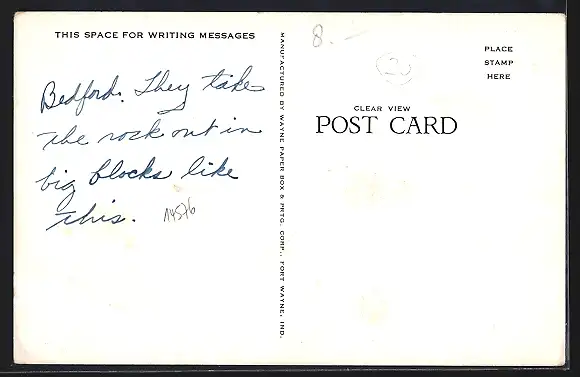 THIS SPACE FOR WRITING MESSAGES
Bedford. They take
the rock out in
big blocks like
this.
14576
MANUFACTURED BY WAYNE PAPER BOX & PRTG. CORP., FORT WAYNE, IND.
8.-
2
PLACE
STAMP
HERE
CLEAR VIEW
POST CARD